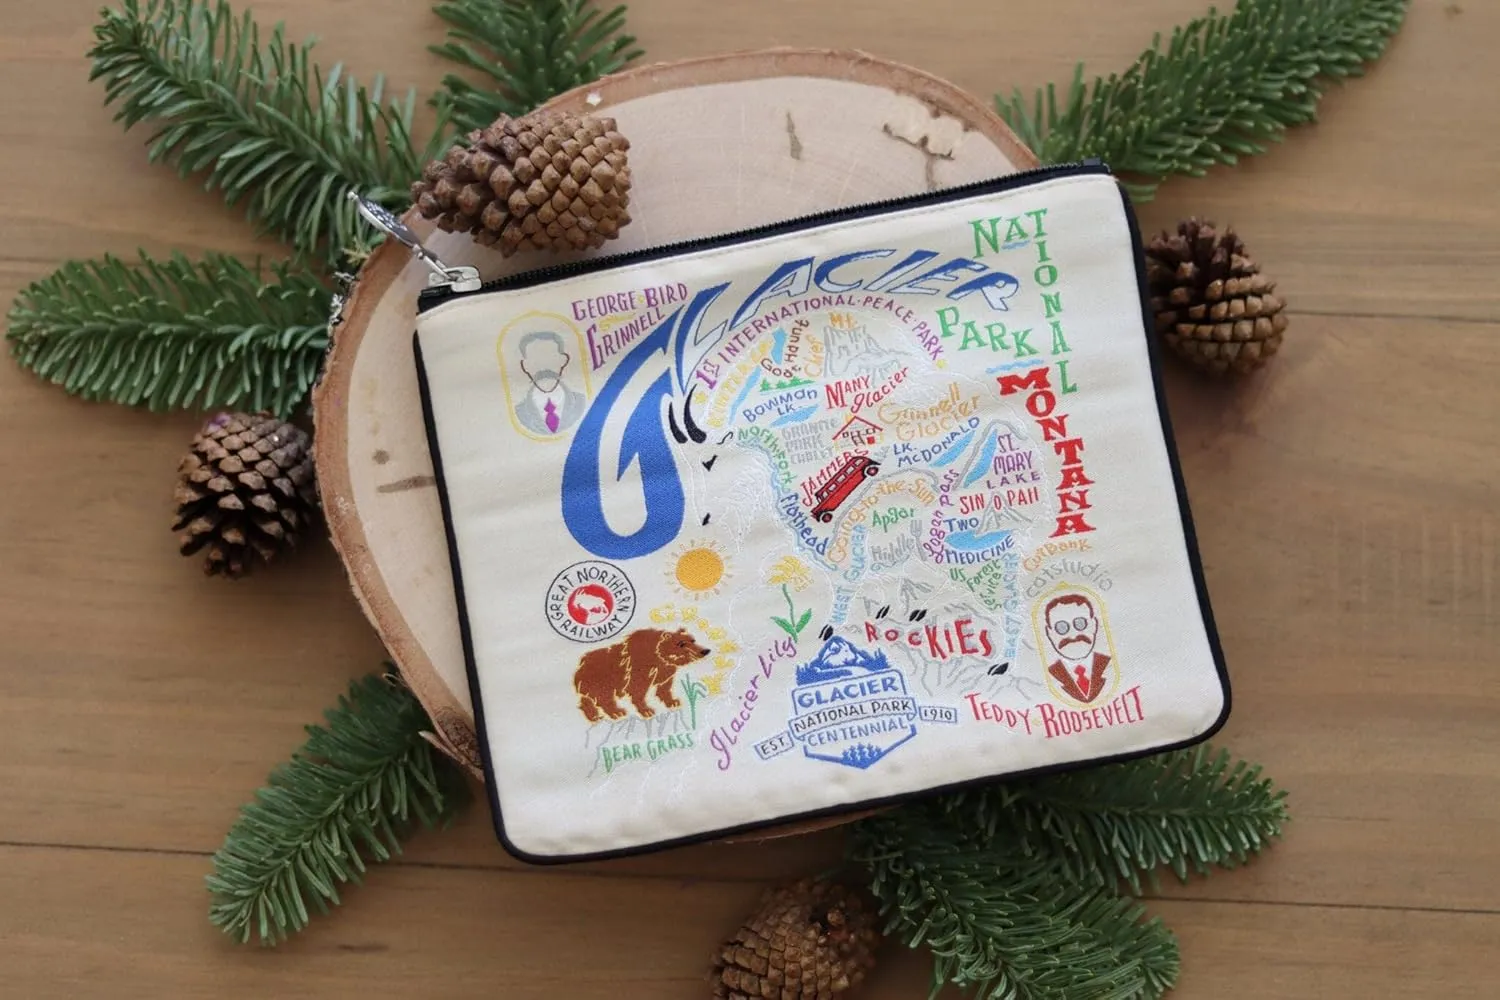 GLACIER
NATIONAL
PARK
MONTANA
GEORGE BIRD
GRINNELL
1ST INTERNATIONAL·PEACE·PARK
Goat Haunt
Mt.
Chief
Bowman
LK.
MANY
glacier
Grinnell
Glacier
GRANITE
PARK
CHALET
LK.
MCDONALD
ST.
MARY
LAKE
North Fork
Flathead
JAMMERS
Going-to-the-Sun
Logan Pass
SIN O PAH
TWO
MEDICINE
Apgar
Middle
WEST GLACIER
US
Forest
Service
EAST GLACIER
CutBank
catstudio
GREAT NORTHERN
RAILWAY
ROCKIES
BEAR GRASS
Glacier Lily
GLACIER
NATIONAL PARK
CENTENNIAL
EST.
1910
TEDDY ROOSEVELT